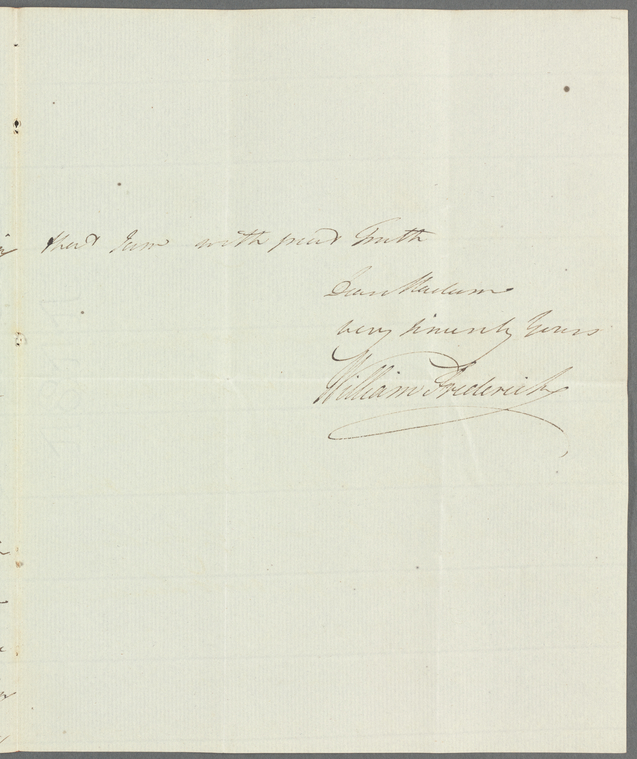 that I am with great Truth
Dear Madam
very sincerely Yours
William Frederick